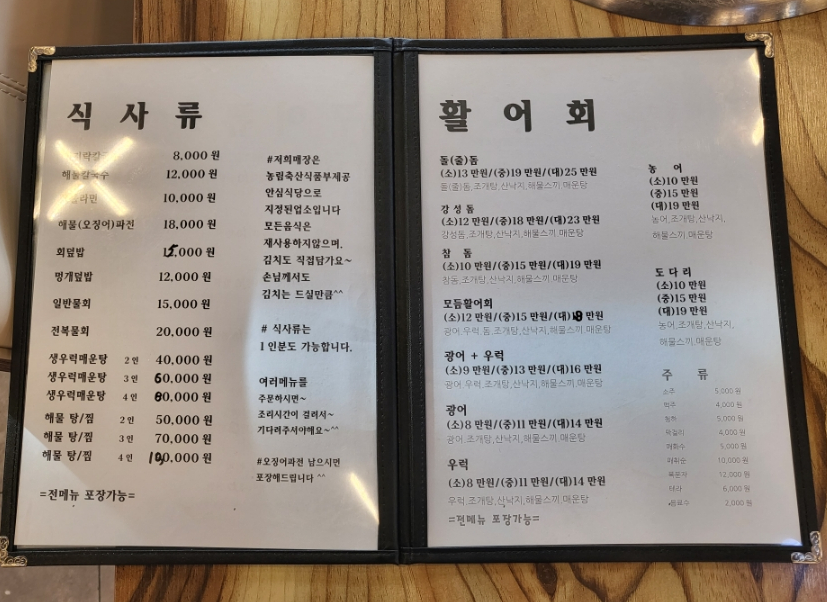 식 사 류
8,000 원
해물칼국수 12,000 원
라면 10,000 원
해물(오징어)파전 18,000 원
회덮밥 15,000 원
멍개덮밥 12,000 원
일반물회 15,000 원
전복물회 20,000 원
생우럭매운탕 2인 40,000 원
생우럭매운탕 3인 60,000 원
생우럭매운탕 4인 80,000 원
해물 탕/찜 2인 50,000 원
해물 탕/찜 3인 70,000 원
해물 탕/찜 4인 100,000 원
=전메뉴 포장가능=
#저희매장은
농림축산식품부제공
안심식당으로
지정된업소입니다
모든음식은
재사용하지않으며,
김치도 직접담가요~
손님께서도
김치는 드실만큼^^
# 식사류는
1 인분도 가능합니다.
여러메뉴를
주문하시면~
조리시간이 걸려서~
기다려주셔야해요~^^
#오징어파전 남으시면
포장해드립니다 ^^
활 어 회
돌(줄)돔
(소)13 만원/(중)19 만원/(대)25 만원
돌(줄)돔,조개탕,산낙지,해물스끼,매운탕
강성돔
(소)12 만원/(중)18 만원/(대)23 만원
강성돔,조개탕,산낙지,해물스끼,매운탕
참 돔
(소)10 만원/(중)15 만원/(대)19 만원
참돔,조개탕,산낙지,해물스끼,매운탕
모듬활어회
(소)12 만원/(중)15 만원/(대)18 만원
광어,우럭,돔,조개탕,산낙지,해물스끼,매운탕
광어 + 우럭
(소)9 만원/(중)13 만원/(대)16 만원
광어,우럭,조개탕,산낙지,해물스끼,매운탕
광어
(소)8 만원/(중)11 만원/(대)14 만원
광어,조개탕,산낙지,해물스끼,매운탕
우럭
(소)8 만원/(중)11 만원/(대)14 만원
우럭,조개탕,산낙지,해물스끼,매운탕
=전메뉴 포장가능=
농 어
(소)10 만원
(중)15 만원
(대)19 만원
농어,조개탕,산낙지,
해물스끼,매운탕
도다리
(소)10 만원
(중)15 만원
(대)19 만원
농어,조개탕,산낙지,
해물스끼,매운탕
주 류
소주 5,000 원
맥주 4,000 원
청하 5,000 원
막걸리 4,000 원
매화수 5,000 원
매취순 10,000 원
복분자 12,000 원
테라 6,000 원
음료수 2,000 원